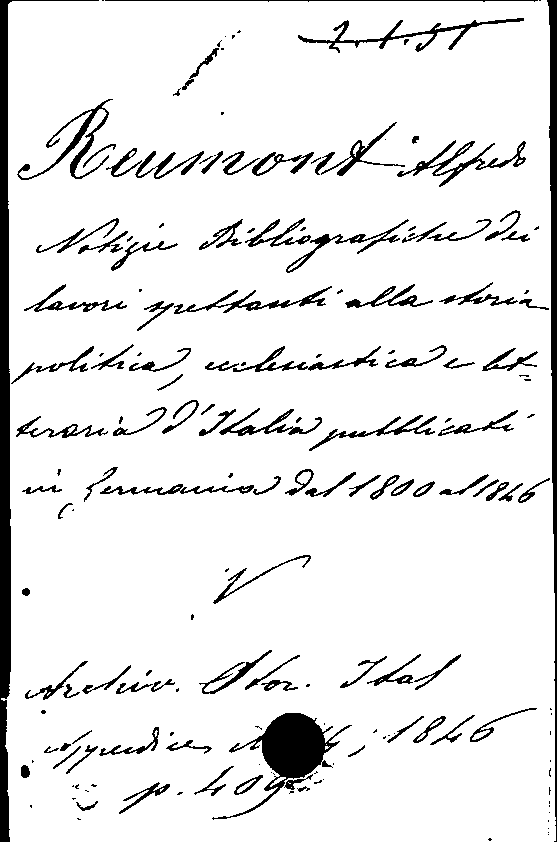 2.1.51
Reumont Alfredo
Notizie Bibliografiche dei
lavori spettanti alla storia
politica, ecclesiastica e let=
teraria d'Italia pubblicati
in Germania dal 1800 al 1846
V
Archiv. Stor. Ital
Appendice, 1846
p. 409